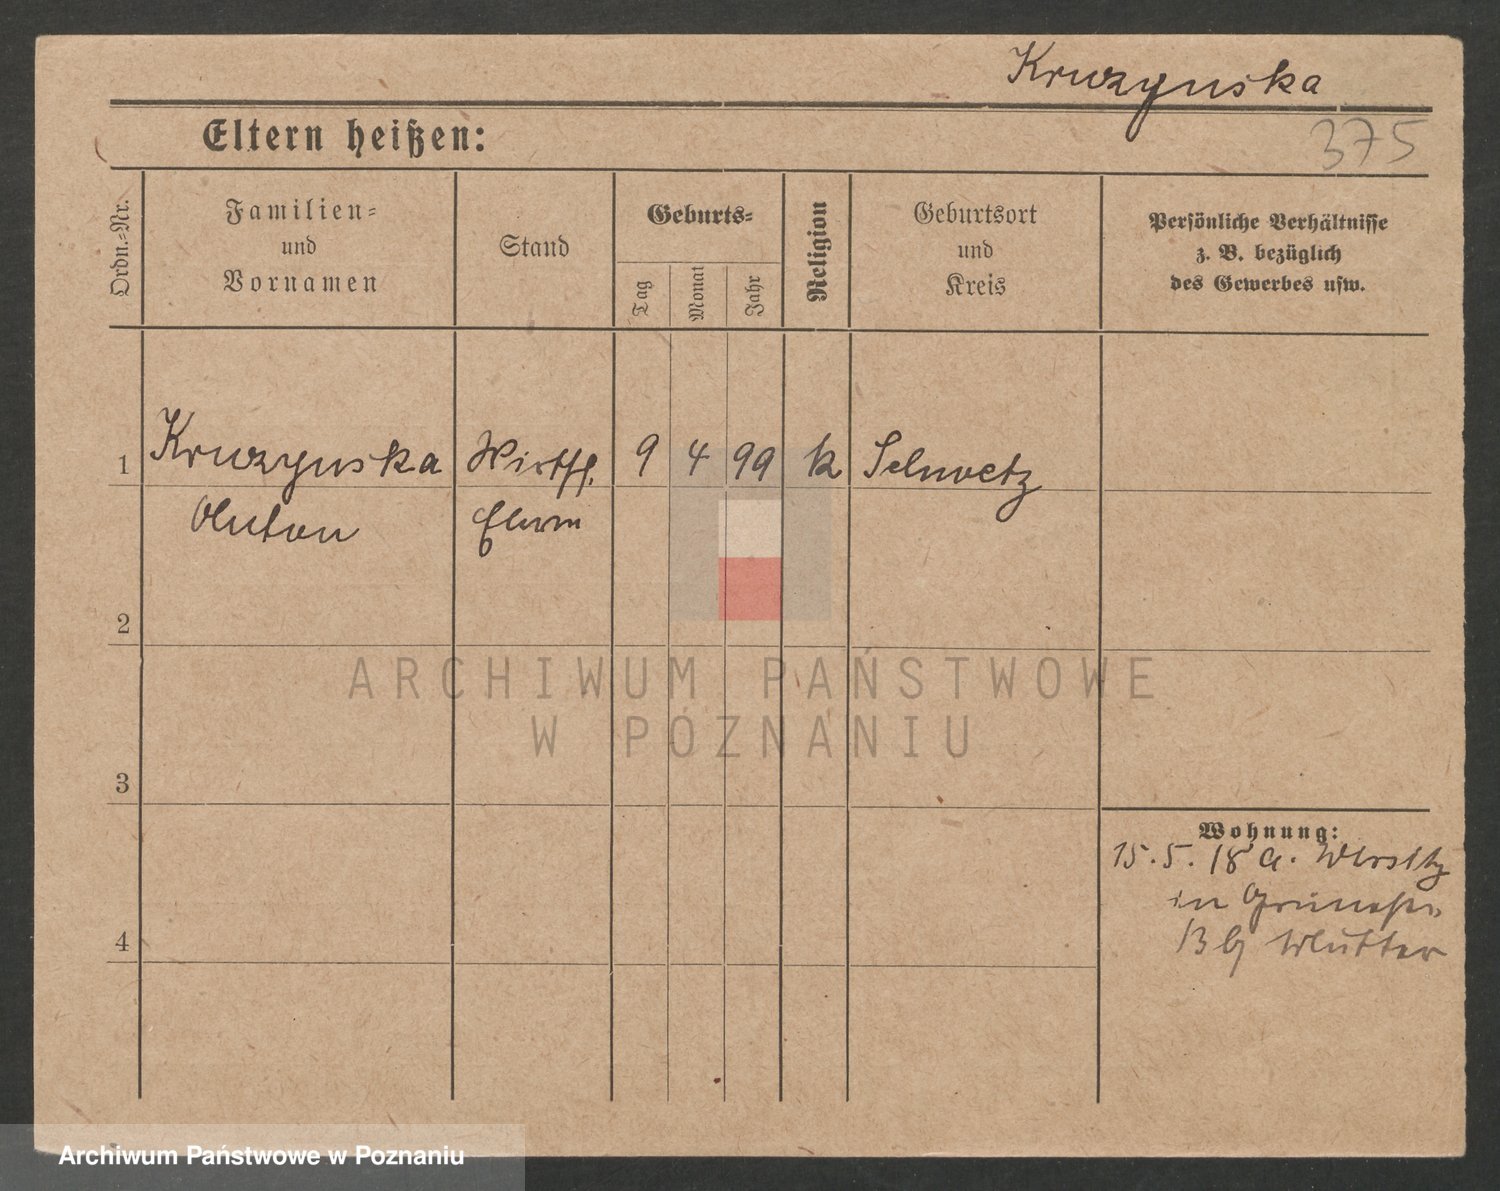 Kruzynska
375
Eltern heißen:
Ordn.-Nr.
Familien-
und
Vornamen
Stand
Geburts-
Tag
Monat
Jahr
Religion
Geburtsort
und
Kreis
Persönliche Verhältnisse
z. B. bezüglich
des Gewerbes usw.
1 Kruzynska Wirtsch. 9 4 99 k
Anton
2
3
4
Wohnung:
15. 5. 18 a.
in
Archiwum Państwowe
w Poznaniu
Archiwum Państwowe w Poznaniu